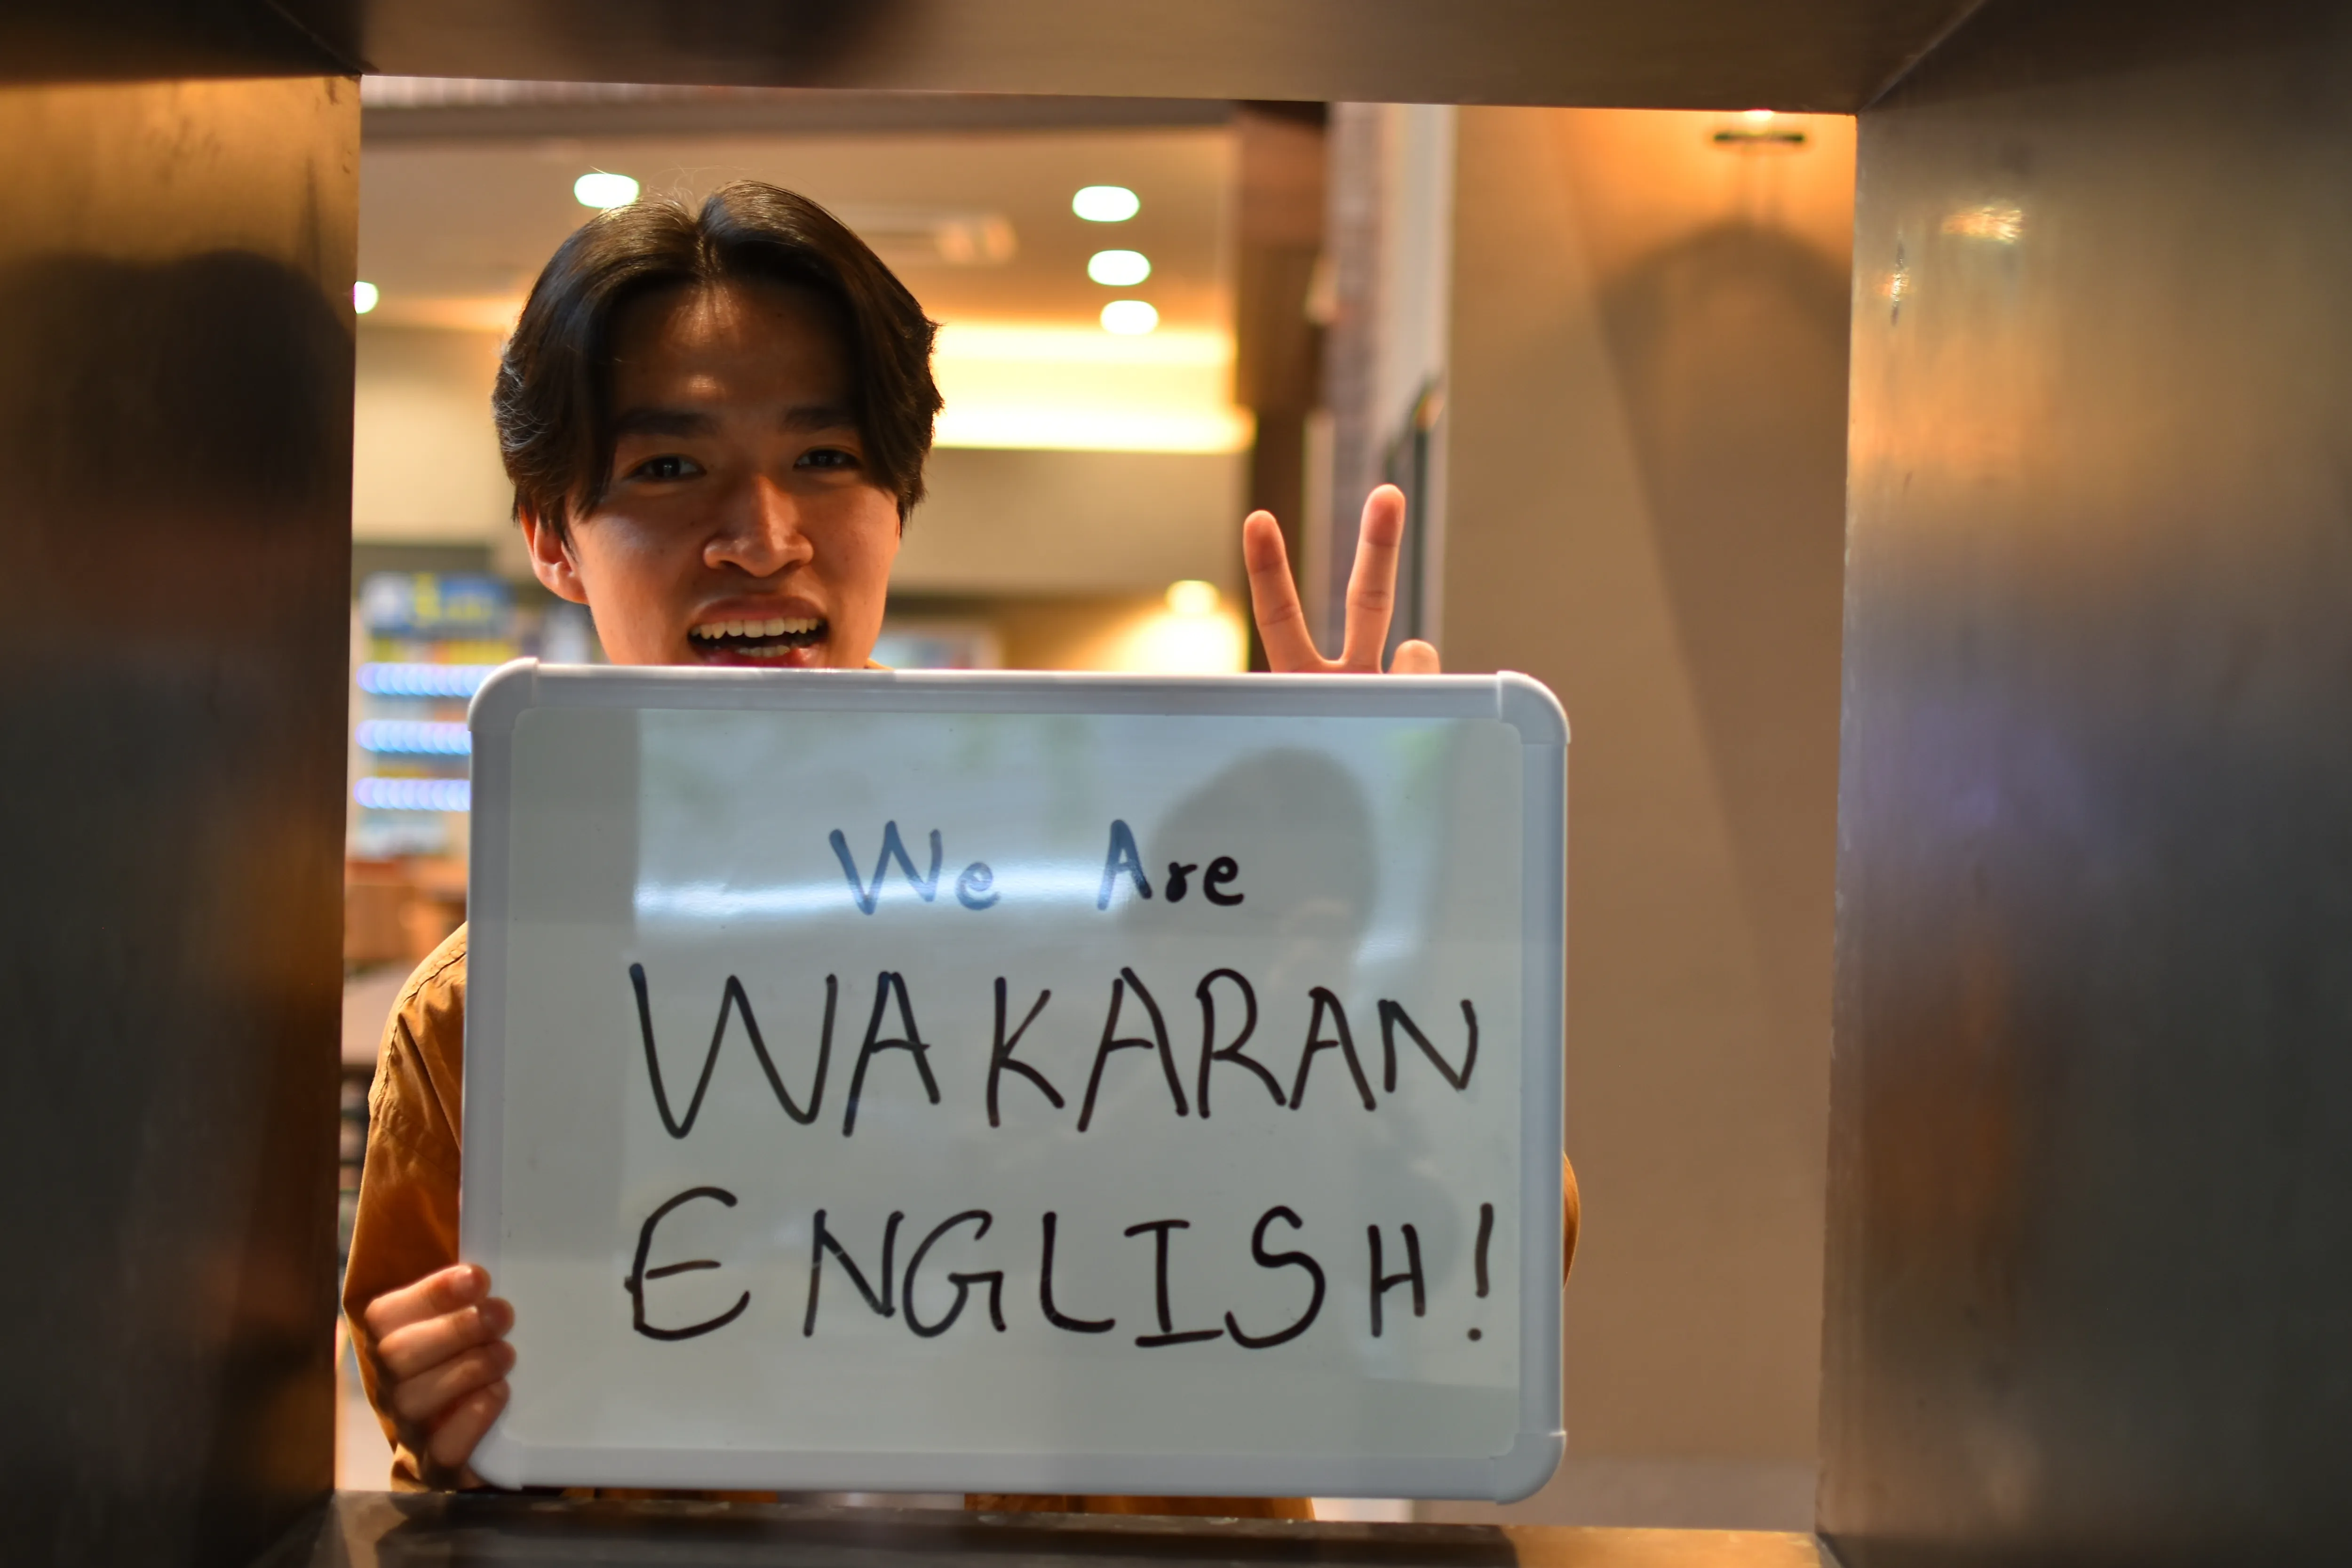 We Are
WAKARAN
ENGLISH!